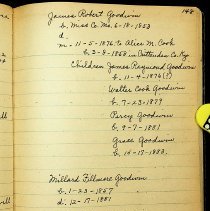 148
James Robert Goodwin
b. Miss Co. Mo. 6-18-1853
d.
m. - 11-5-1876 to Alice M. Cook
b. 3-8-1858 in Crittenden Co. Ky.
Children James Raymond Goodwin
b. 11-4-1876(?)
Walter Cook Goodwin
b. 7-23-1879
Percy Goodwin
b. 9-7-1881
Grace Goodwin
b. 10-17-1883.
Millard Fillmore Goodwin
b. 1-23-1857
d. 12-17-1881